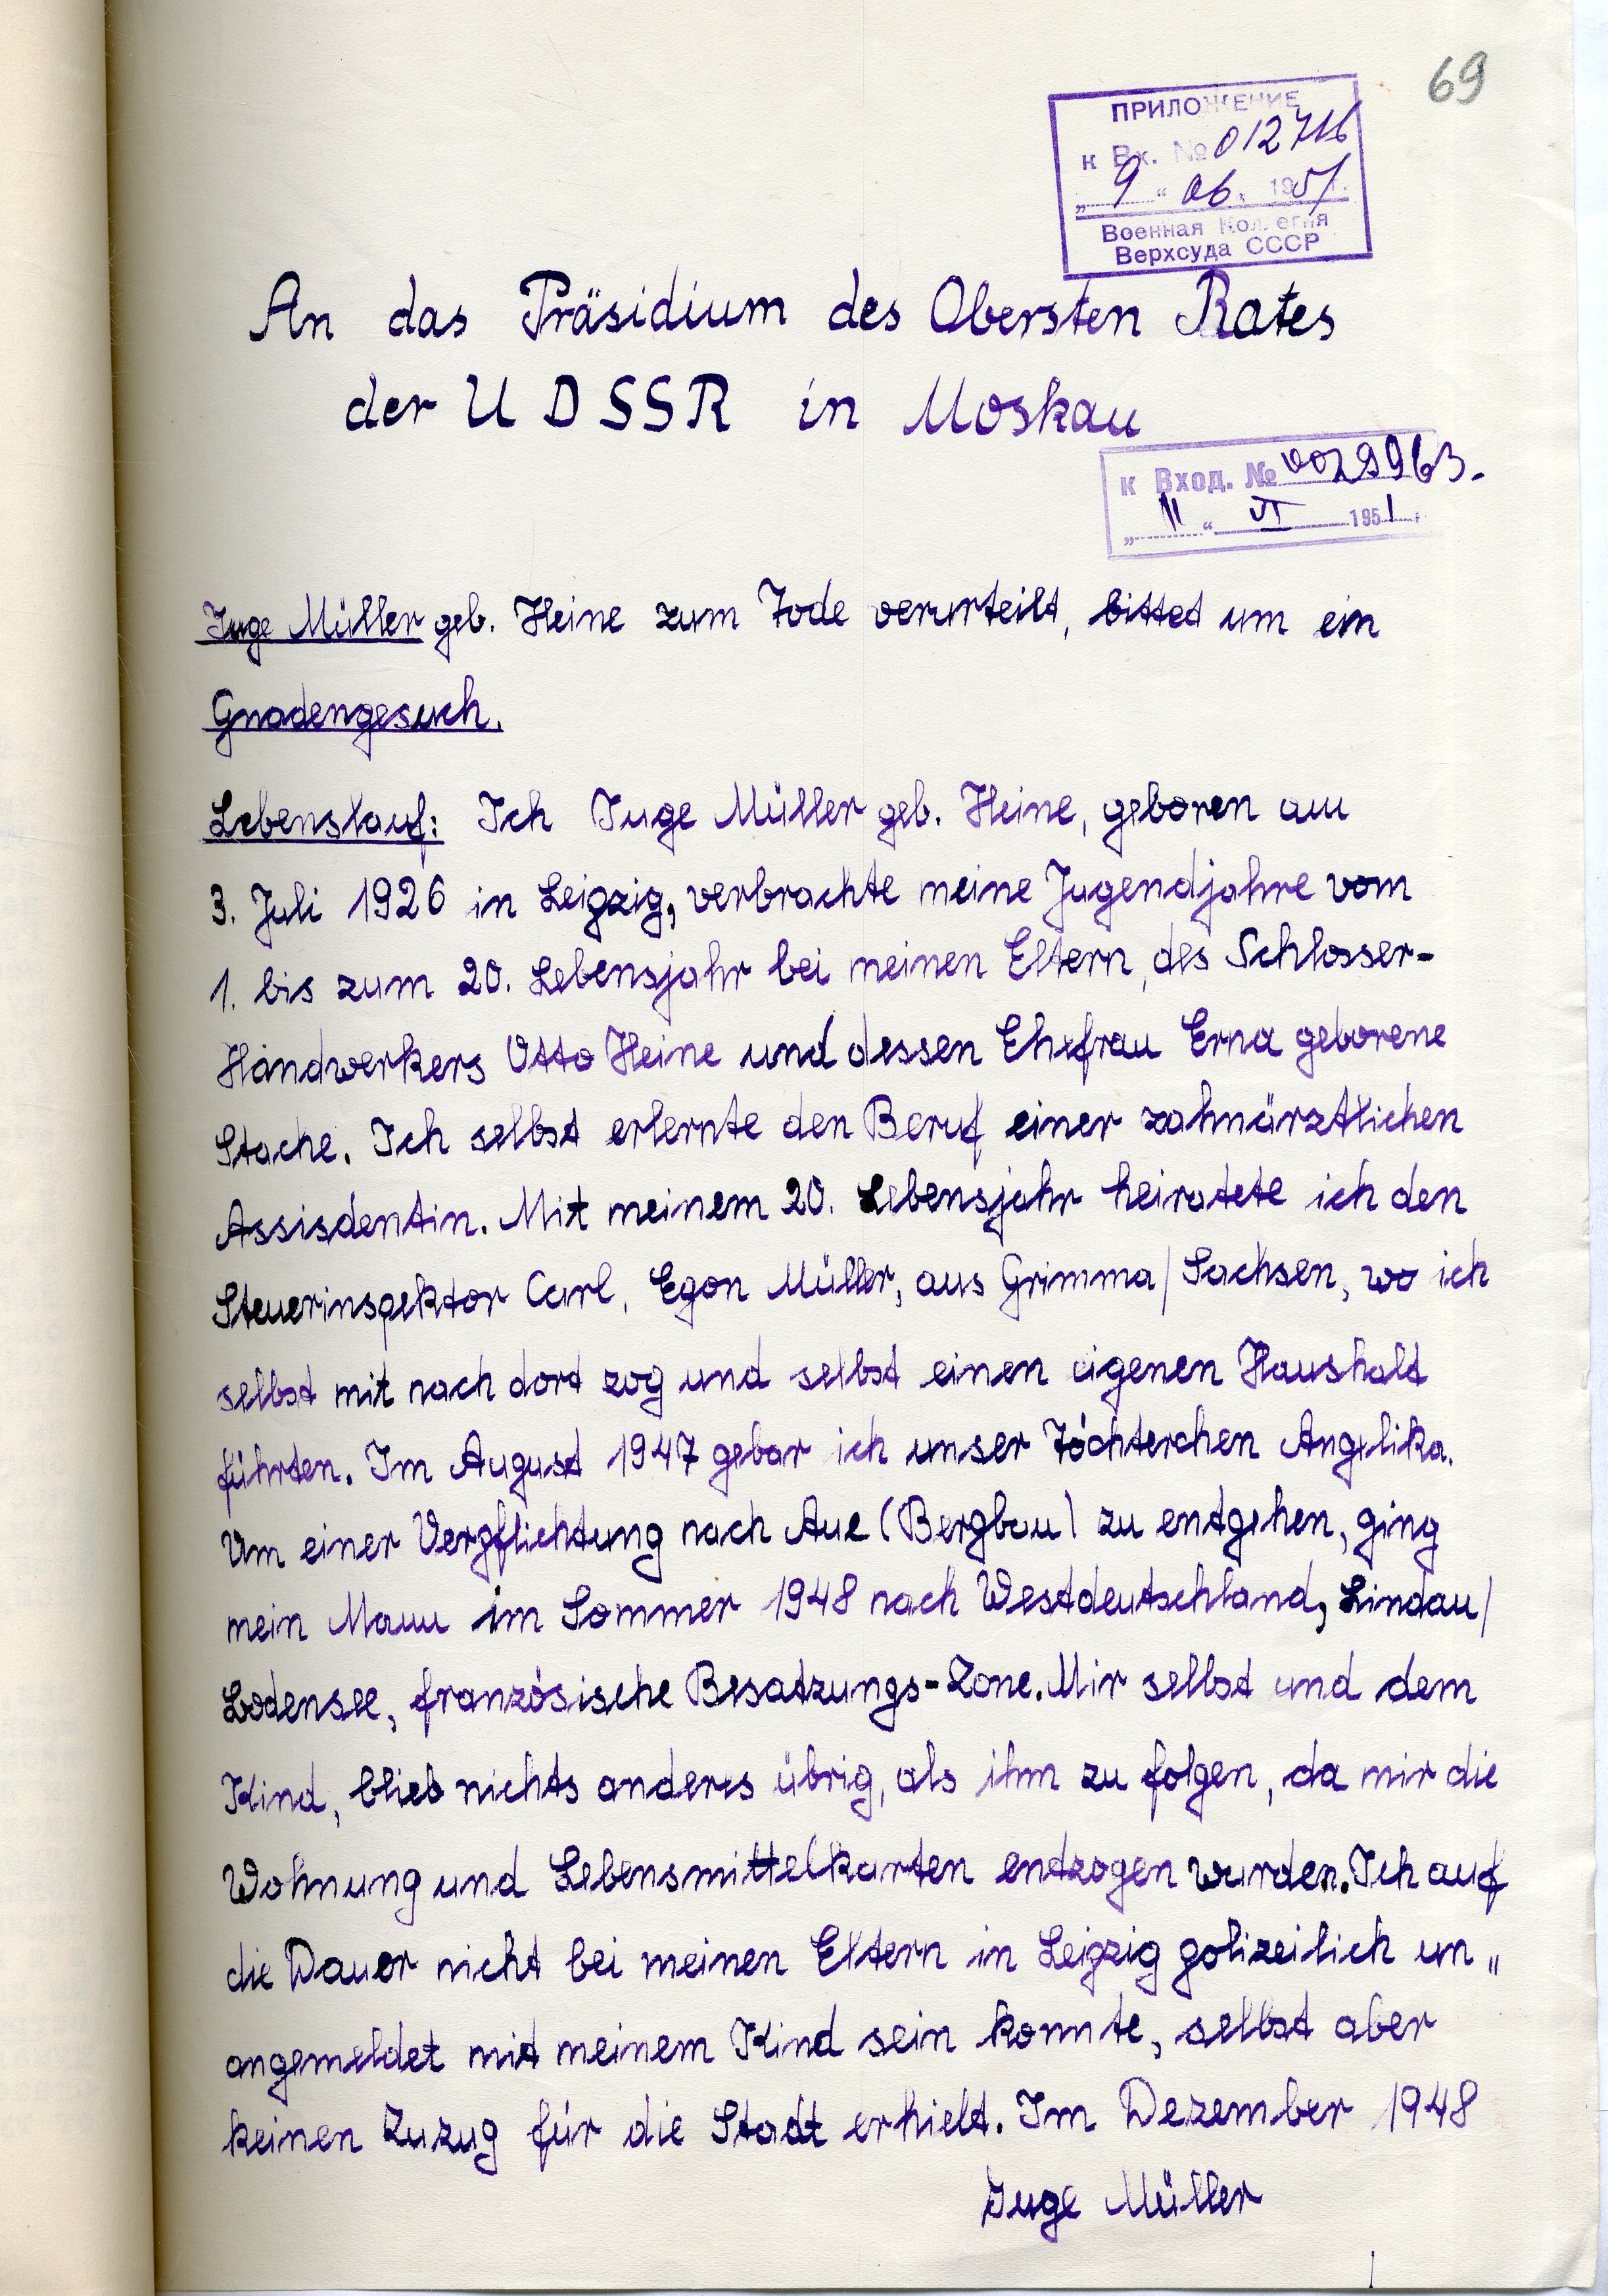 69
ПРИЛОЖЕНИЕ
к Вх. № 012716
„ 9 “ 06. 1951 г.
Военная Коллегия
Верхсуда СССР
An das Präsidium des Obersten Rates
der U D S S R in Moskau
к Вход. № 0029963.
„ 11 “ VI 1951 г.
Inge Müller geb. Heine zum Tode verurteilt, bittet um ein
Gnadengesuch.
Lebenslauf: Ich Inge Müller geb. Heine, geboren am
3. Juli 1926 in Leipzig, verbrachte meine Jugendjahre vom
1. bis zum 20. Lebensjahr bei meinen Eltern, des Schlosser-
Handwerkers Otto Heine und dessen Ehefrau Erna geborene
Stache. Ich selbst erlernte den Beruf einer zahnärztlichen
Assisdentin. Mit meinem 20. Lebensjahr heiratete ich den
Steuerinspektor Carl, Egon Müller, aus Grimma/Sachsen, wo ich
selbst mit nach dort zog und selbst einen eigenen Haushalt
führten. Im August 1947 gebar ich unser Töchterchen Angelika.
Um einer Verpflichtung nach Aue (Bergbau) zu entgehen, ging
mein Mann im Sommer 1948 nach Westdeutschland, Lindau/
Bodensee, französische Besatzungs-Zone. Mir selbst und dem
Kind, blieb nichts anderes übrig, als ihm zu folgen, da mir die
Wohnung und Lebensmittelkarten entzogen wurden. Ich auf
die Dauer nicht bei meinen Eltern in Leipzig polizeilich un „
angemeldet mit meinem Kind sein konnte, selbst aber
keinen Zuzug für die Stadt erhielt. Im Dezember 1948
Inge Müller